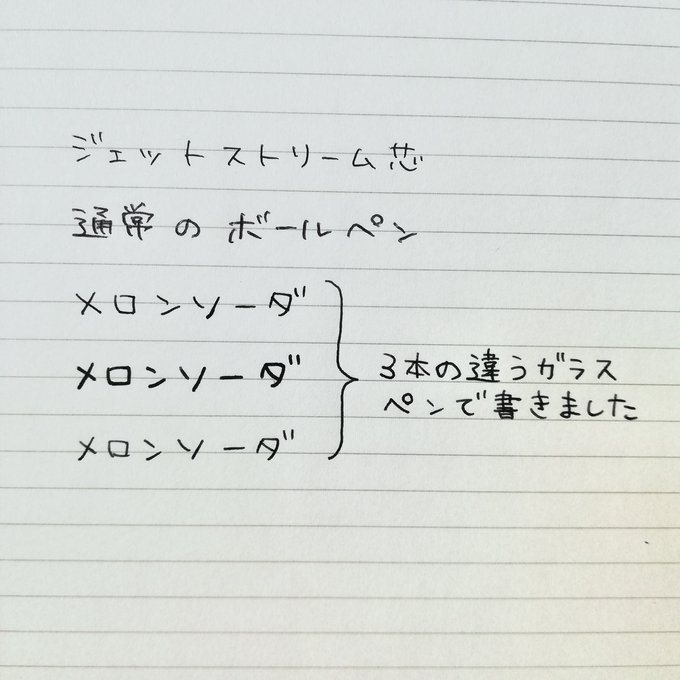 ジェットストリーム芯
通常のボールペン
メロンソーダ
メロンソーダ
メロンソーダ
3本の違うガラス
ペンで書きました